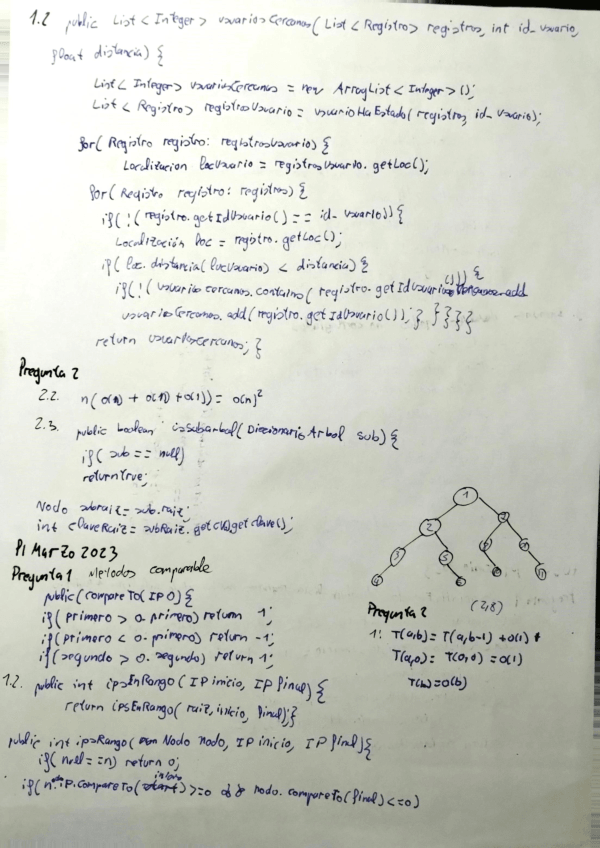 1.2 public List < Integer > usuariosCercanos( List < Registro > registros, int id_usuario,
float distancia) {
List < Integer > usuariosCercanos = new ArrayList < Integer > ();
List < Registro > registrosUsuario = usuarioHaEstado( registros, id_usuario);
for( Registro registro: registrosUsuario) {
Localizacion locUsuario = registrosUsuario. getLoc();
for( Registro registro: registros) {
if( ! ( registro. getIdUsuario() == id_usuario)) {
Localización loc = registro. getLoc();
if( loc. distancia( locUsuario) < distancia) {
if( ! ( usuarioscercanos. contains( registro. getIdUsuario()))) {
usuariosCercanos. add( registro. getIdUsuario()); } } } } }
return usuarioscercanos; }
Pregunta 2
2.2. n( o(n) + o(1) + o(1)) = o(n)²
2.3. public boolean esSubarbol( DiccionarioArbol sub) {
if( sub == null)
return true;
Nodo subraiz = sub. raiz;
int claveRaiz = subRaiz. getclave();
P1 Marzo 2023
Pregunta 1 Metodos comparable
public( compareTo( IP O) {
if( primero > o. primero) return 1;
if( primero < o. primero) return -1;
if( segundo > o. segundo) return 1;
1.2. public int ipsEnRango( IP inicio, IP final) {
return ipsEnRango( raiz, inicio, final); }
public int ipsRango( Nodo nodo, IP inicio, IP final) {
if( null == n) return 0;
if( n. iP. compareTo( inicio) >= 0 && nodo. compareTo( final) <= 0)
1
2
3
5
Pregunta 2 (2,8)
1: T(a,b) = T(a,b-1) + o(1)
T(a,0) = T(0,0) = o(1)
T(b) = o(b)